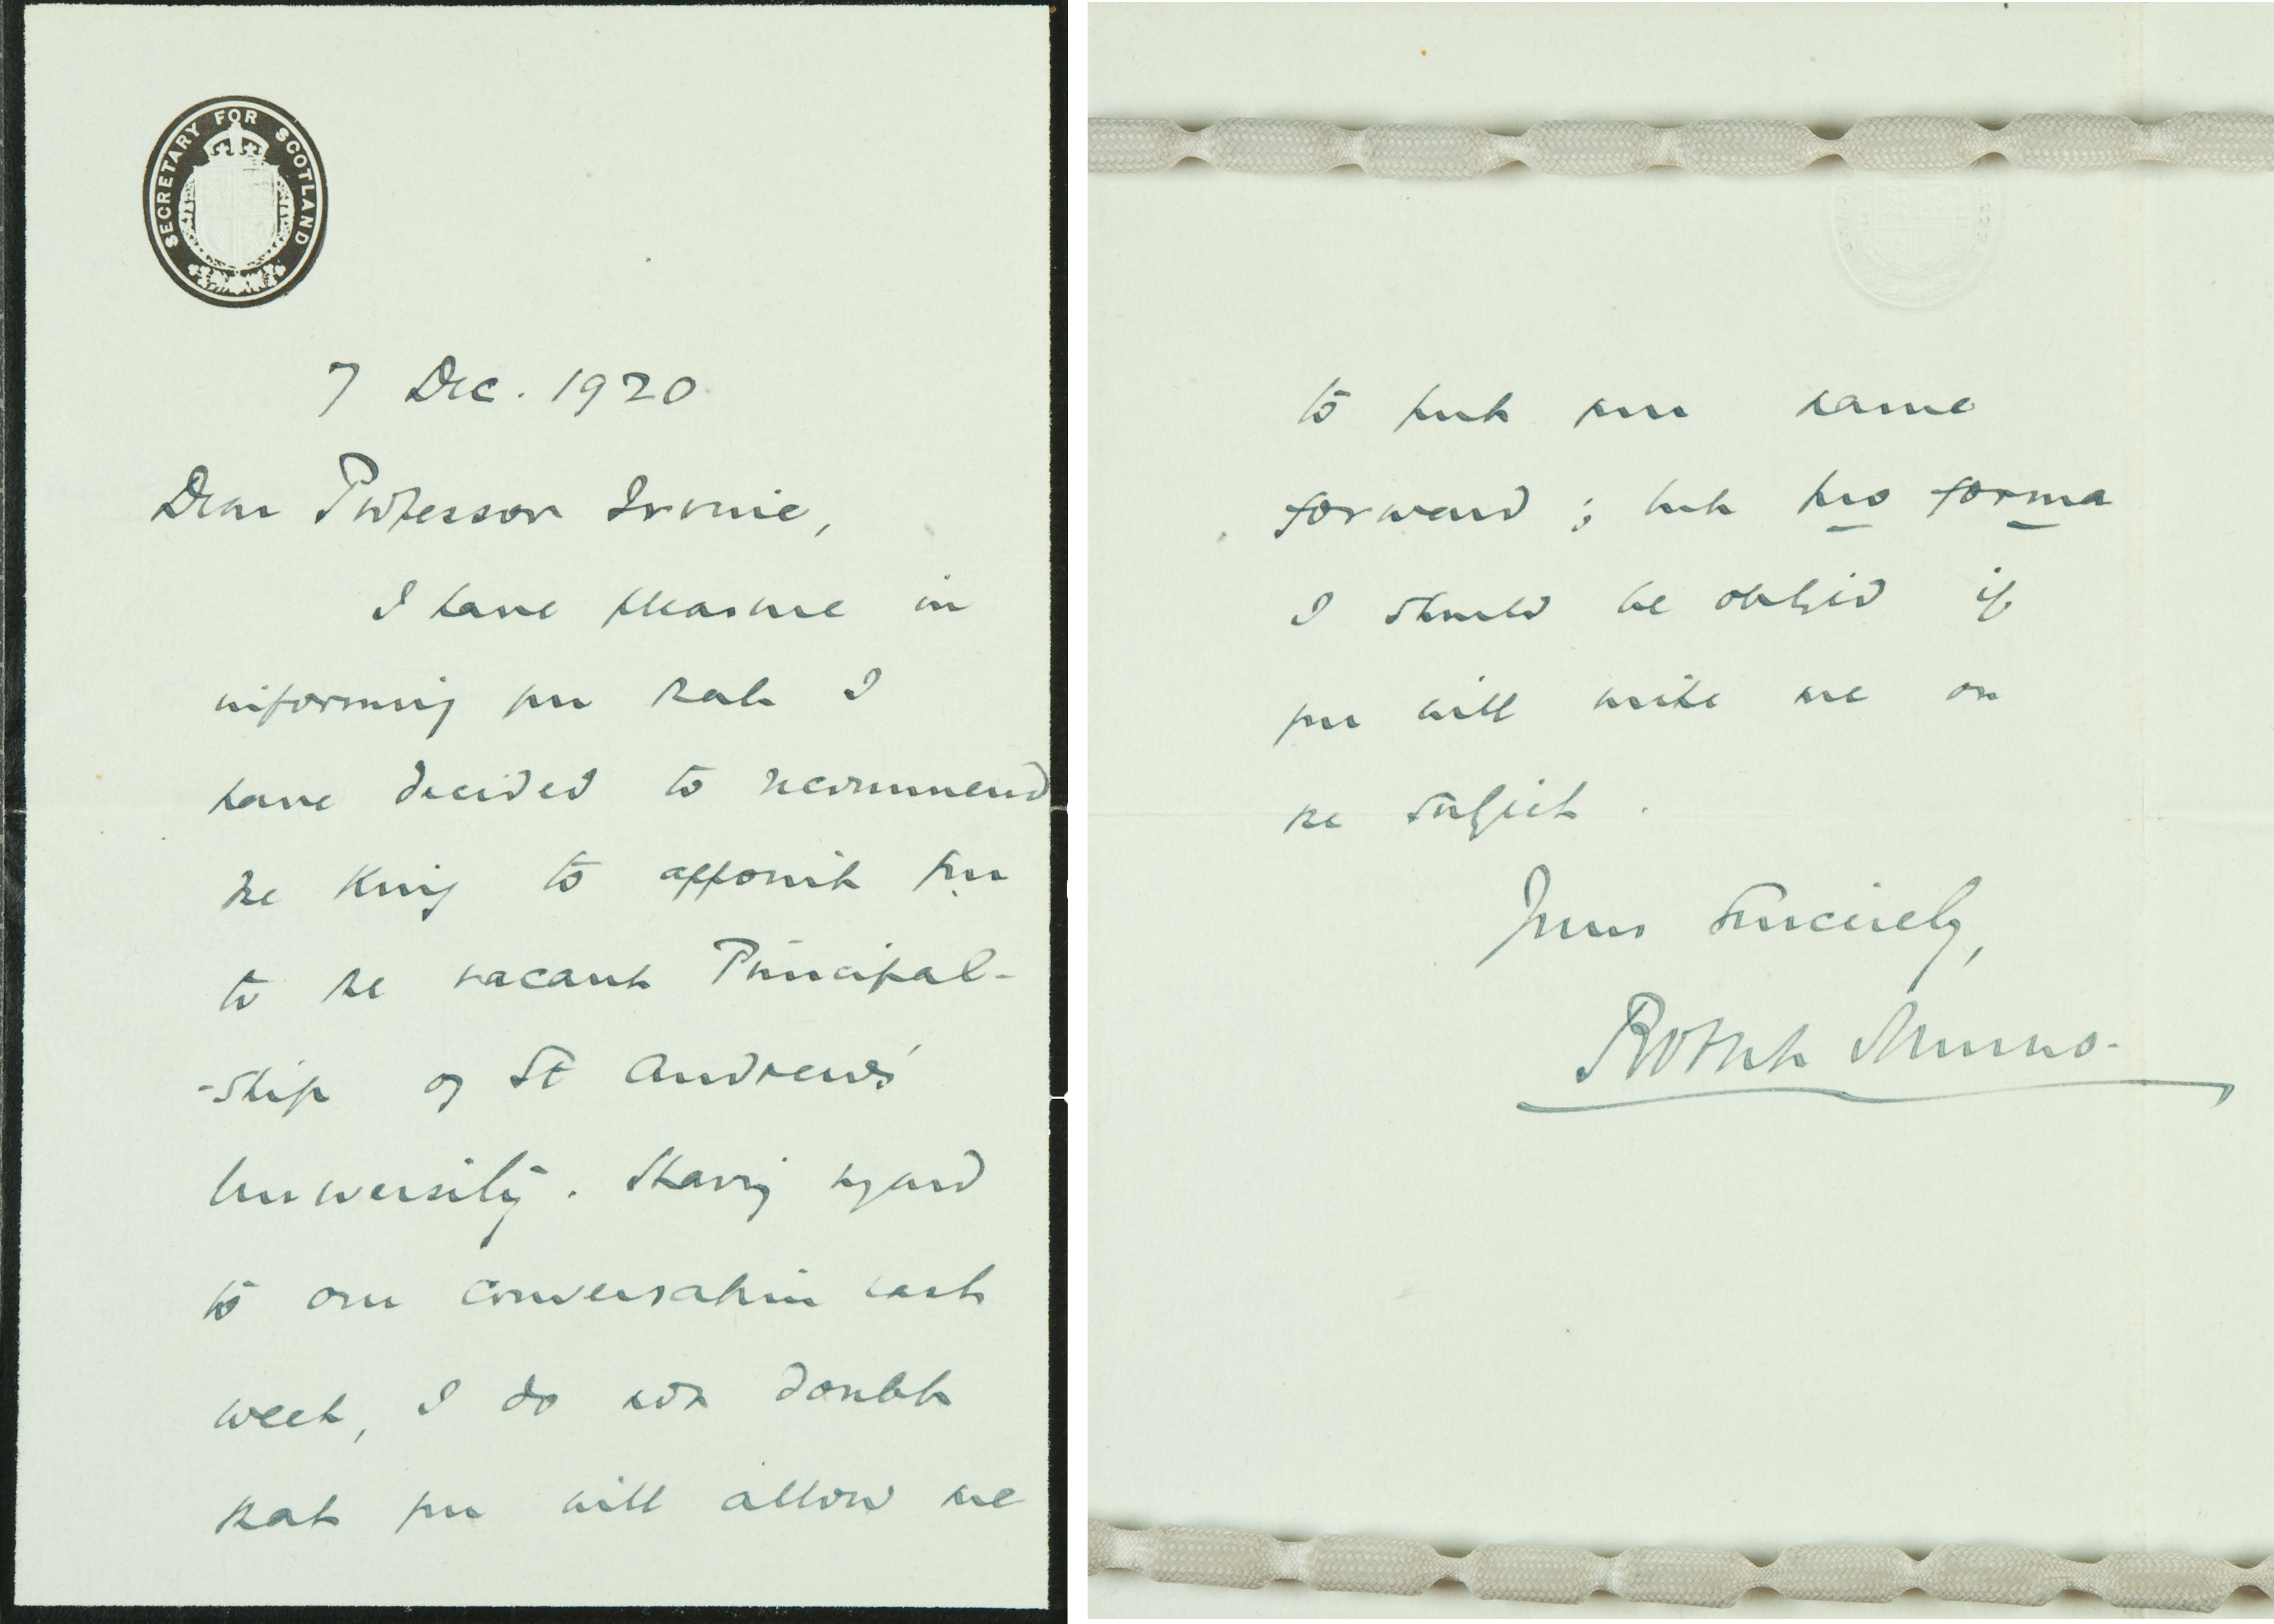 SECRETARY FOR SCOTLAND
7 Dec. 1920
Dear Professor Irvine,
I have pleasure in
informing you that I
have decided to recommend
the King to appoint you
to the vacant Principal-
-ship of St Andrews'
University. Having regard
to our conversation last
week, I do not doubt
that you will allow me
to put your name
forward; but pro forma
I should be obliged if
you will write me on
the subject.
Yours sincerely,
Robert Munro.